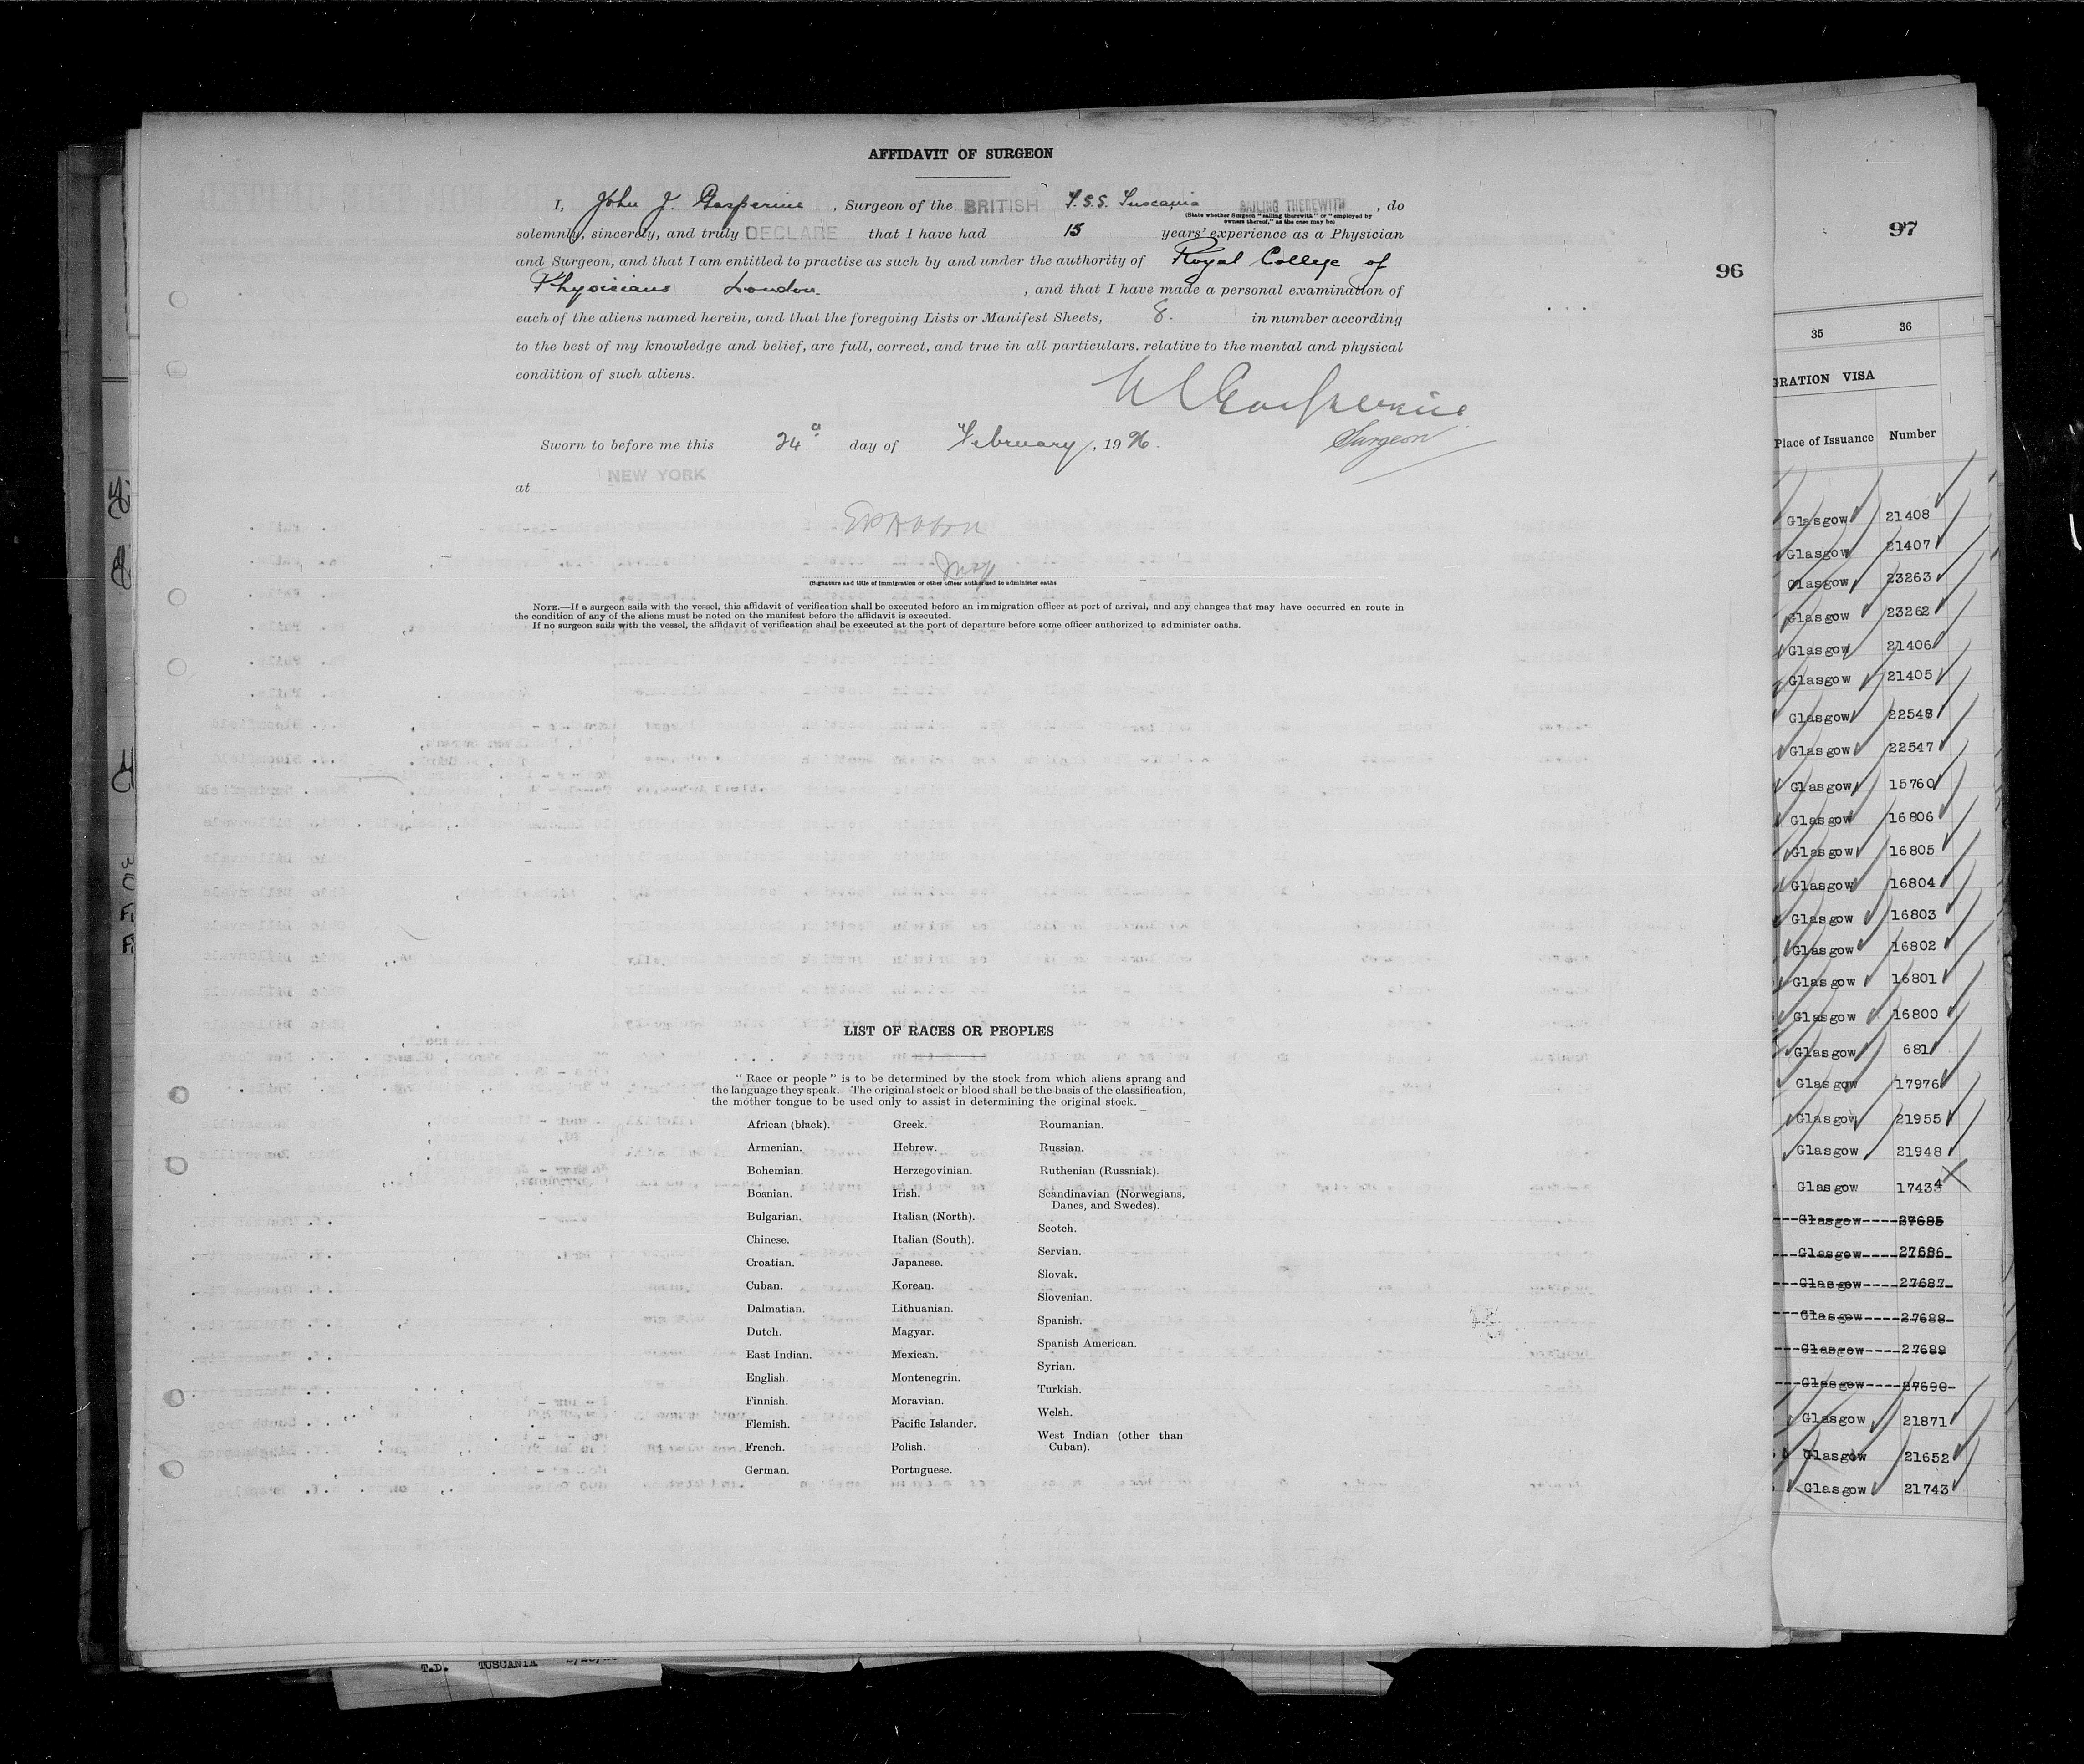 AFFIDAVIT OF SURGEON
I, John J. Gasperine, Surgeon of the BRITISH T.S.S. Tuscania SAILING THEREWITH, do
(State whether Surgeon "sailing therewith" or "employed by
owners thereof," as the case may be)
solemnly, sincerely, and truly DECLARE that I have had 15 years' experience as a Physician
and Surgeon, and that I am entitled to practise as such by and under the authority of Royal College of
Physicians London., and that I have made a personal examination of
each of the aliens named herein, and that the foregoing Lists or Manifest Sheets, 8. in number according
to the best of my knowledge and belief, are full, correct, and true in all particulars. relative to the mental and physical
condition of such aliens.
Surgeon
Sworn to before me this 24 day of February, 1926.
at NEW YORK
Insp
(Signature and title of immigration or other officer authorized to administer oaths
NOTE.—If a surgeon sails with the vessel, this affidavit of verification shall be executed before an immigration officer at port of arrival, and any changes that may have occurred en route in
the condition of any of the aliens must be noted on the manifest before the affidavit is executed.
If no surgeon sails with the vessel, the affidavit of verification shall be executed at the port of departure before some officer authorized to administer oaths.
96
LIST OF RACES OR PEOPLES
"Race or people" is to be determined by the stock from which aliens sprang and
the language they speak. The original stock or blood shall be the basis of the classification,
the mother tongue to be used only to assist in determining the original stock.
African (black).
Armenian.
Bohemian.
Bosnian.
Bulgarian.
Chinese.
Croatian.
Cuban.
Dalmatian.
Dutch.
East Indian.
English.
Finnish.
Flemish.
French.
German.
Greek.
Hebrew.
Herzegovinian.
Irish.
Italian (North).
Italian (South).
Japanese.
Korean.
Lithuanian.
Magyar.
Mexican.
Montenegrin.
Moravian.
Pacific Islander.
Polish.
Portuguese.
Roumanian.
Russian.
Ruthenian (Russniak).
Scandinavian (Norwegians,
Danes, and Swedes).
Scotch.
Servian.
Slovak.
Slovenian.
Spanish.
Spanish American.
Syrian.
Turkish.
Welsh.
West Indian (other than
Cuban).
T.D. TUSCANIA
97
35 36
GRATION VISA
Place of Issuance Number
Glasgow 21408
Glasgow 21407
Glasgow 23263
Glasgow 23262
Glasgow 21406
Glasgow 21405
Glasgow 22548
Glasgow 22547
Glasgow 15760
Glasgow 16806
Glasgow 16805
Glasgow 16804
Glasgow 16803
Glasgow 16802
Glasgow 16801
Glasgow 16800
Glasgow 681
Glasgow 17976
Glasgow 21955
Glasgow 21948
Glasgow 17434
Glasgow 27685
Glasgow 27686
Glasgow 27687
Glasgow 27688
Glasgow 27689
Glasgow 27690
Glasgow 21871
Glasgow 21652
Glasgow 21743